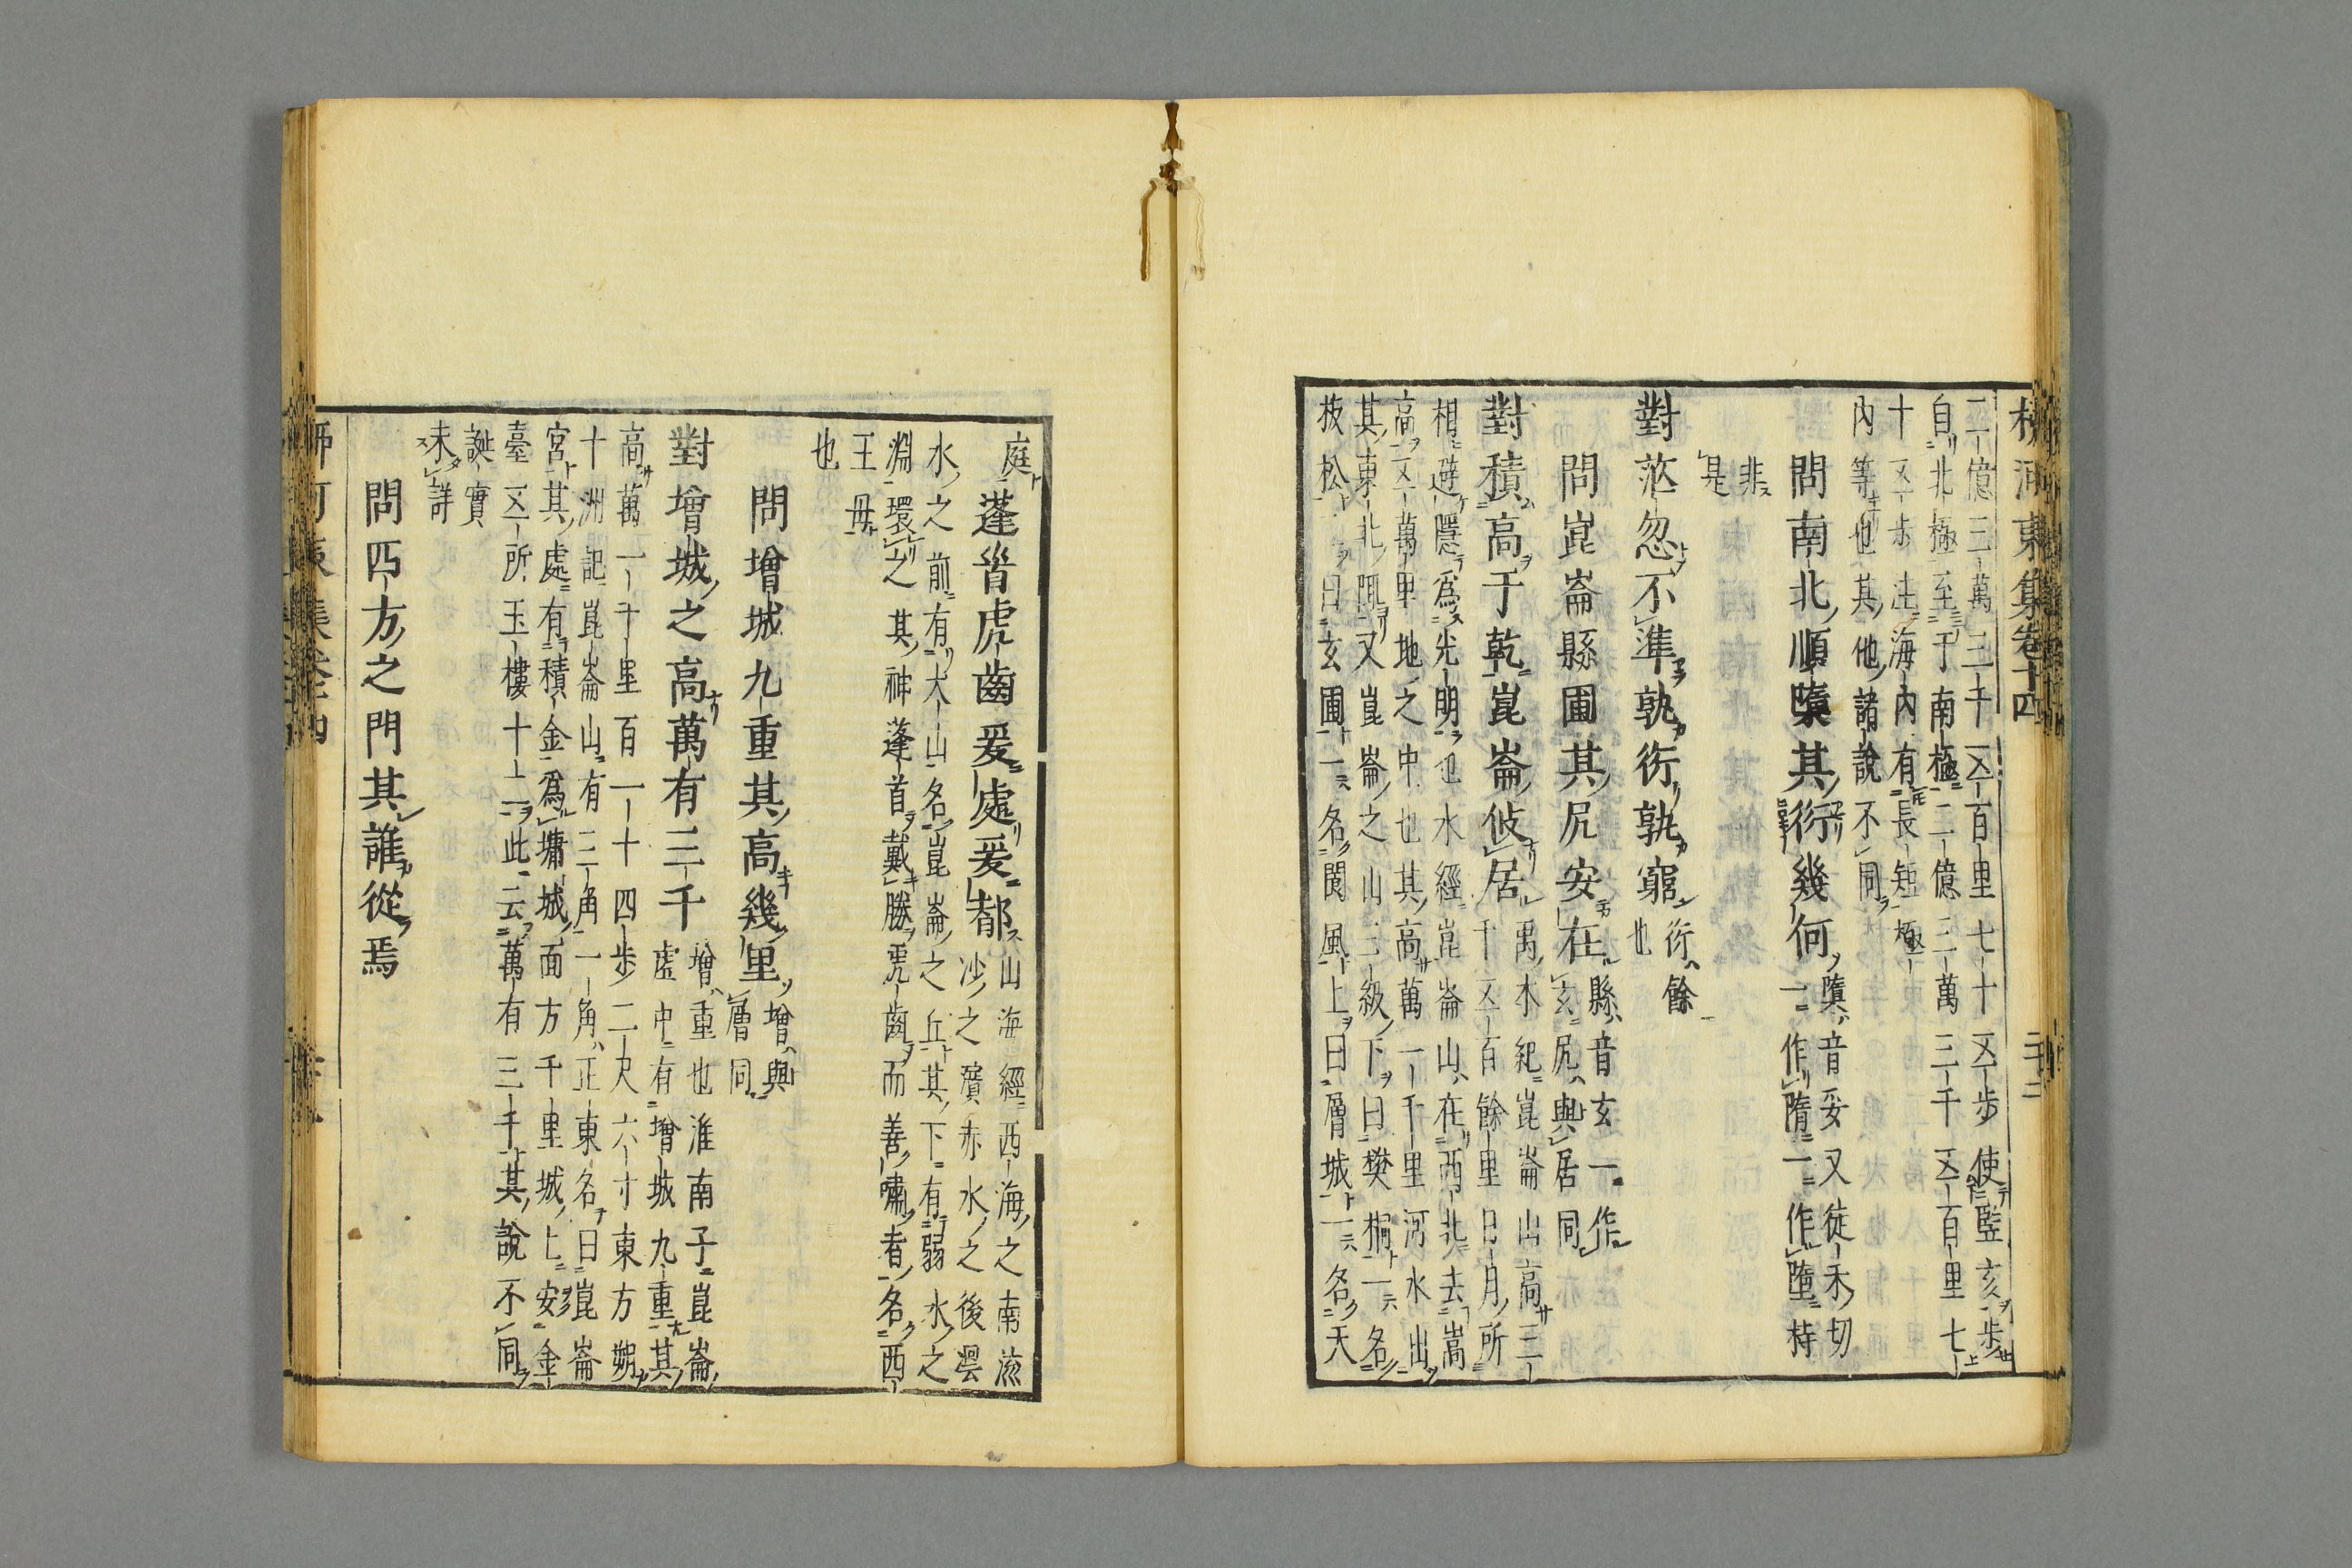 柳河東集卷十四 二十二
二億三萬三千五百里七十五步使豎亥步
自北極至于南極二億三萬三千五百里七
十五步注海內有長短極
內等也其他諸說不同
問南北順墮其衍幾何墮音妥又徒禾切
一作隋一作墮持
非
是
對茫忽不準孰衍孰窮衍餘
也
問崑崙縣圃其尻安在縣音玄一作
玄尻與居同
對積高于乾崑崙攸居禹本紀崑崙山高三
千五百餘里日月所
相避隱爲光明也水經崑崙山在西北去嵩
高五萬里地之中也其高萬一千里河水出
其東北陬又崑崙之山三級下曰樊桐一名
板松曰玄圃一名閬風上曰層城一名天
庭蓬首虎齒爰處爰都山海經西海之南流
沙之濱赤水之後黑
水之前有大山名崑崙之丘其下有弱水之
淵環之其神蓬首戴勝虎齒而善嘯者名西
王母
也
問增城九重其高幾里增與
層同
對增城之高萬有三千增重也淮南子崑崙
虛中有增城九重其
高萬一千里百一十四步二尺六寸東方朔
十洲記崑崙山有三角一角正東名曰崑崙
宮其處有積金爲墉城面方千里城上安金
臺五所玉樓十二此云萬有三千其說不同
誕實
未詳
問四方之門其誰從焉